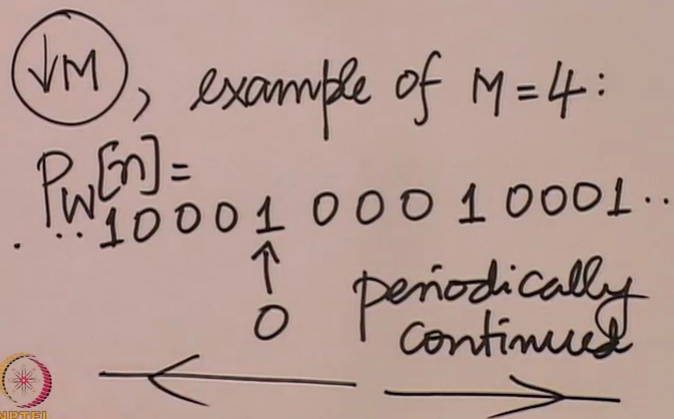 ↓M, example of M=4:
PW[n]=
. .. 1 0 0 0 1 0 0 0 1 0 0 0 1 ..
↑
0
periodically
continued
NPTEL